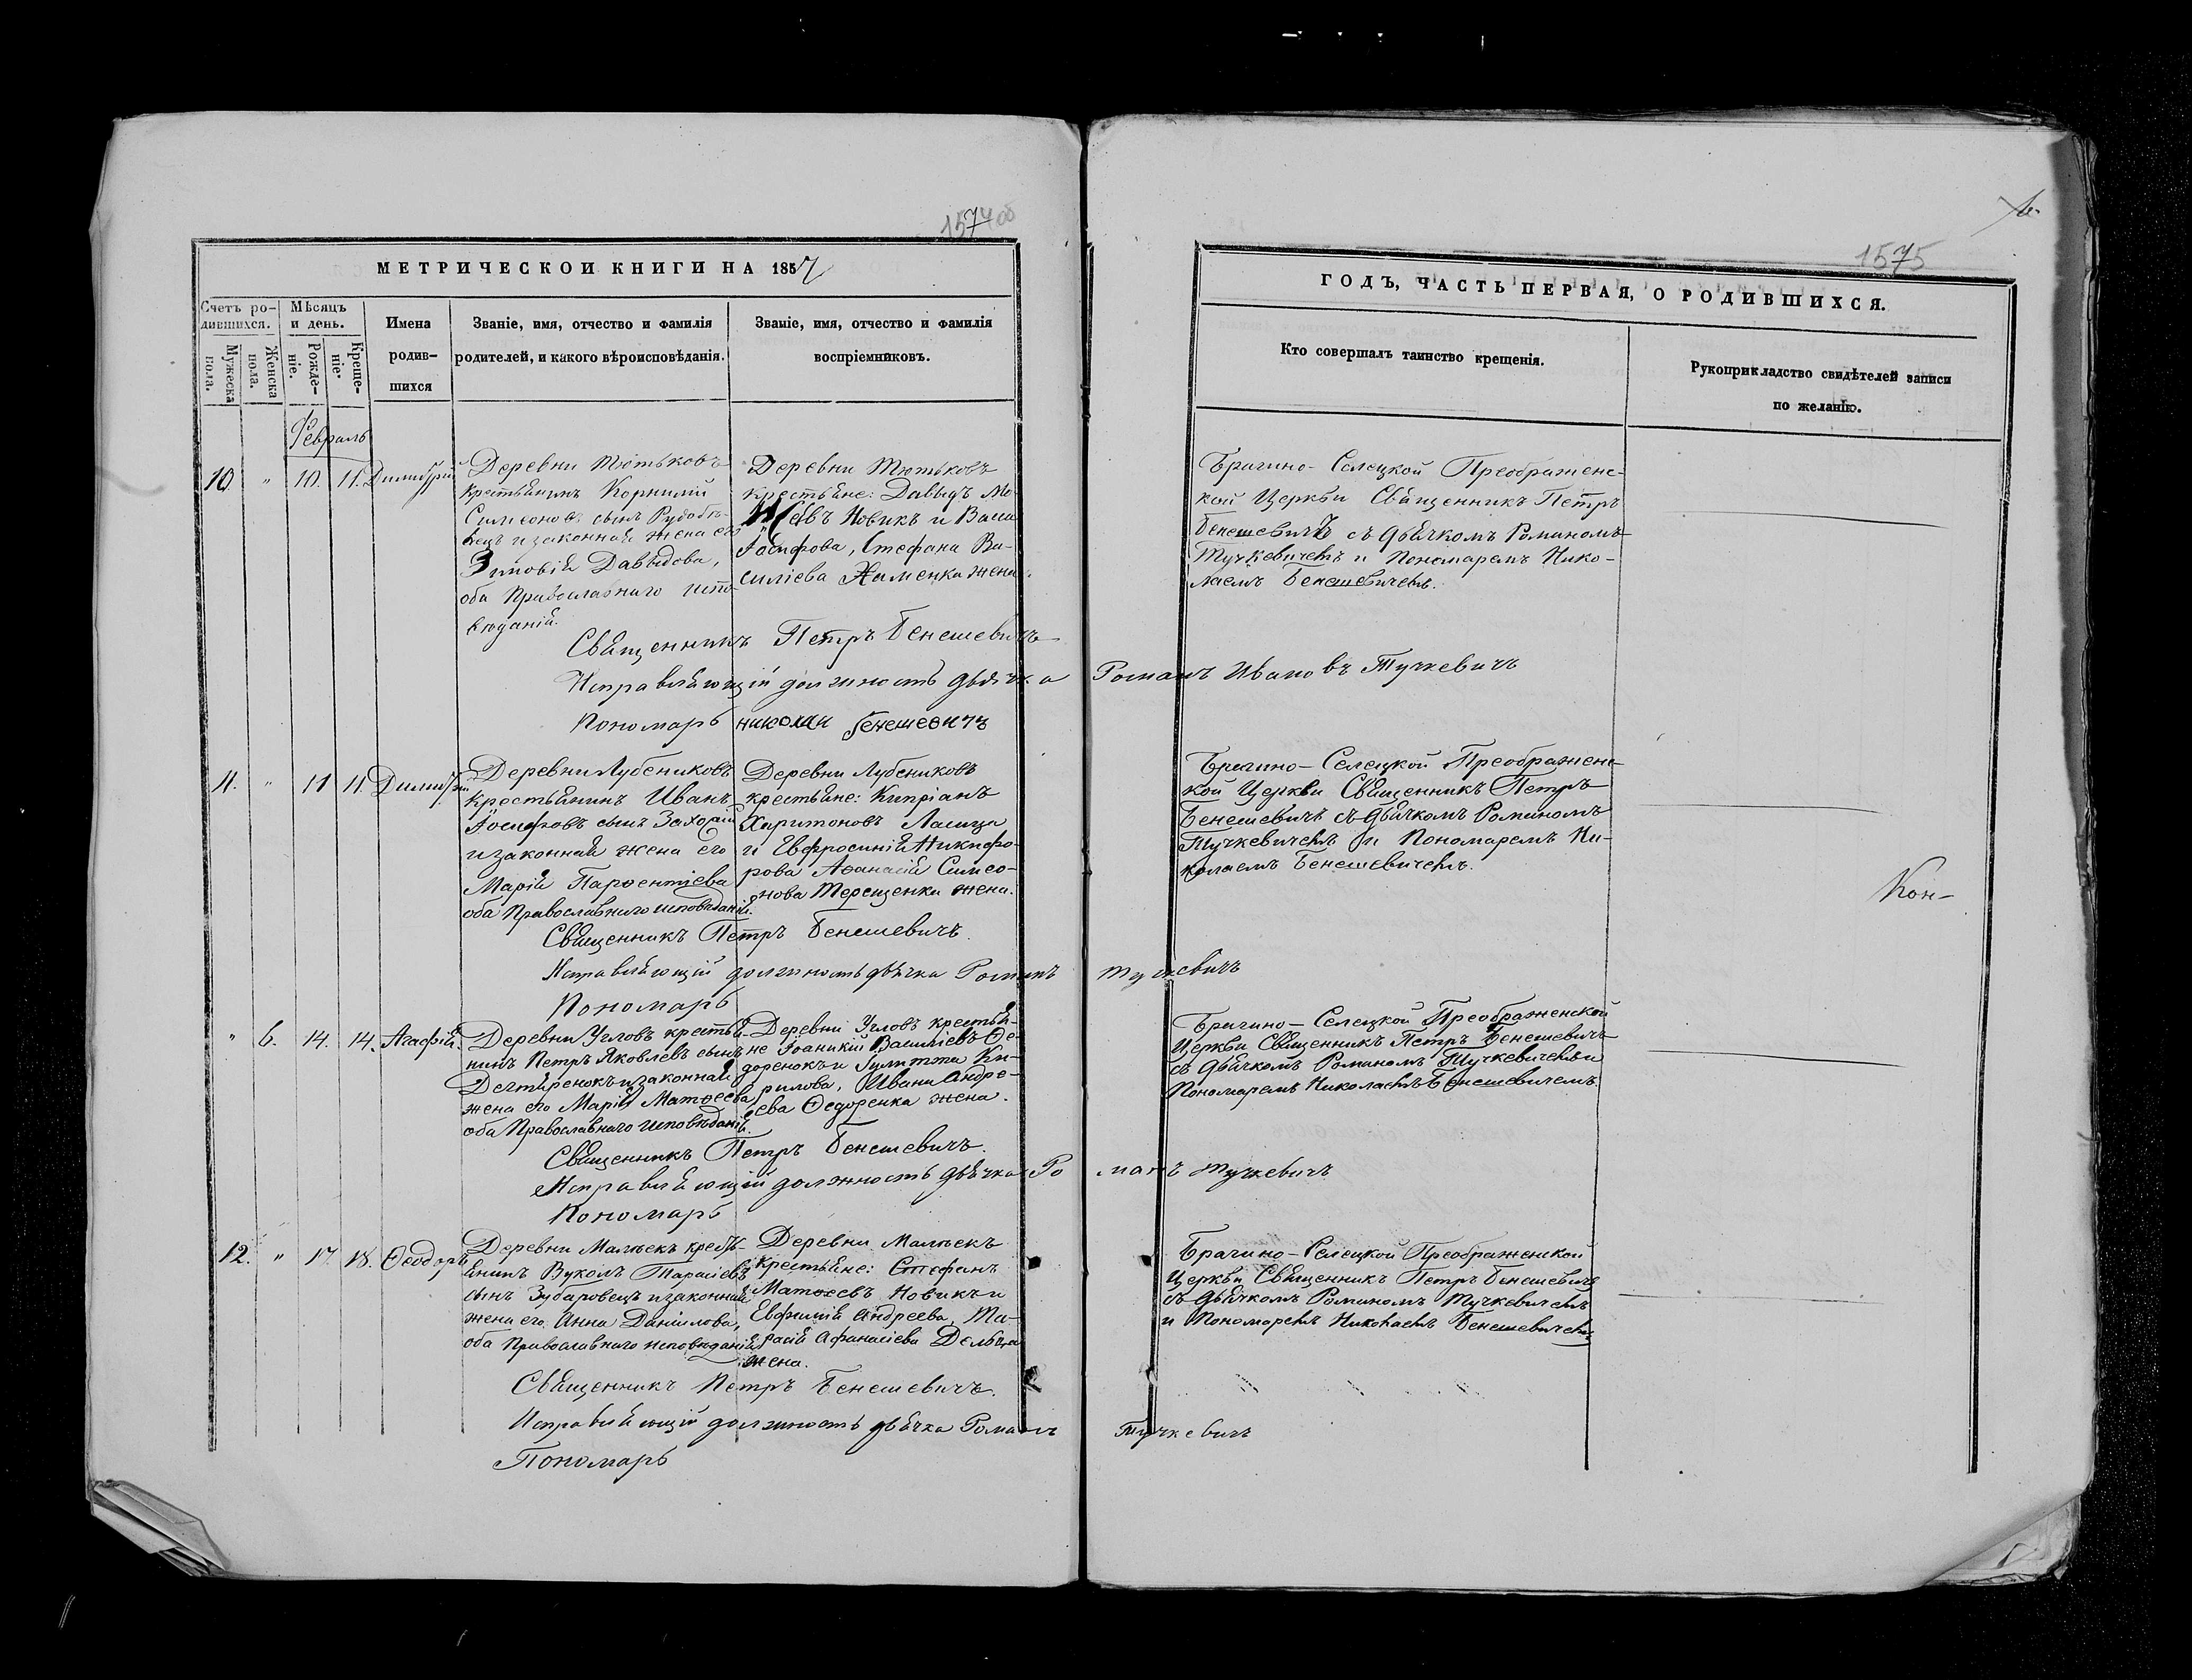 1574 об
МЕТРИЧЕСКОЙ КНИГИ НА 1857
Счетъ родившихся.
Мѣсяцъ и день.
Мужеска пола.
Женска пола.
Рожденіе.
Крещеніе.
Имена
родив-
шихся
Званіе, имя, отчество и фамилія
родителей, и какого вѣроисповѣданія.
Званіе, имя, отчество и фамилія
воспріемниковъ.
1575
ГОДЪ, ЧАСТЬ ПЕРВАЯ, О РОДИВШИХСЯ.
Кто совершалъ таинство крещенія.
Рукоприкладство свидѣтелей записи
по желанію.
Февраль
10. " 10. 11. Димитрій
Деревни Тютьковъ
крестьянинъ Корнилій
Симеоновъ сынъ
и законная жена его
Зиновія Давыдова,
оба Православнаго испо-
вѣданія.
Деревни Тютьковъ
крестьяне: Давыдъ Мо-
Новикъ и Васи
Іосифова, Стефана Ва-
силіева Хаменка жена.
Брагино-Селецкой Преображенс-
кой Церкви Священникъ Петръ
Бенешевичъ съ дьячкомъ Романомъ
Тучкевичемъ и Пономаремъ Нико-
лаемъ Бенешевичемъ.
Священникъ Петръ Бенешевичъ
Исправляющій должность дьячка Романъ Ивановъ Тучкевичъ
Пономарь Николай Бенешевичъ
11. " 11 11. Димитрій
Деревни Лубениковъ
крестьянинъ Иванъ
Іосифовъ сынъ
и законная жена его
Марія Парѳентіева
оба Православнаго исповѣданія.
Деревни Лубениковъ
крестьяне: Кипріанъ
Харитоновъ Ласица
и Евфросинія Никифо-
рова Аѳанасія Симео-
нова Терещенка жена.
Брагино-Селецкой Преображенс-
кой Церкви Священникъ Петръ
Бенешевичъ съ дьячкомъ Романомъ
Тучкевичемъ и Пономаремъ Ни-
колаемъ Бенешевичемъ.
Кон-
Священникъ Петръ Бенешевичъ.
Исправляющій должность дьячка Романъ Тучкевичъ
Пономарь
" 6. 14. 14. Агафія.
Деревни Угловъ крестья-
нинъ Петръ Яковлевъ сынъ
Дегтяренокъ и законная
жена его Марія Матѳеева
оба Православнаго исповѣданія.
Деревни Угловъ крестья-
не Іоаникій Василіевъ Ѳе-
доренокъ и Іулитта Ки-
рилова, Ивана Андре-
ева Ѳедоренка жена.
Брагино-Селецкой Преображенской
Церкви Священникъ Петръ Бенешевичъ
съ дьячкомъ Романомъ Тучкевичемъ и
Пономаремъ Николаемъ Бенешевичемъ.
Священникъ Петръ Бенешевичъ.
Исправляющій должность дьячка Романъ Тучкевичъ
Пономарь
12. " 17. 18. Ѳеодоръ
Деревни Малѣекъ кресть-
янинъ Вуколъ Тарасіевъ
сынъ Зубаровецъ и законная
жена его Анна Даніилова,
оба Православнаго исповѣданія.
Деревни Малѣекъ
крестьяне: Стефанъ
Матѳеевъ Новикъ и
Евфимія Андреева, Та-
расія Афанасіева
жена.
Брагино-Селецкой Преображенской
Церкви Священникъ Петръ Бенешевичъ
съ дьячкомъ Романомъ Тучкевичемъ
и Пономаремъ Николаемъ Бенешевичемъ
Священникъ Петръ Бенешевичъ.
Исправляющій должность дьячка Романъ Тучкевичъ
Пономарь